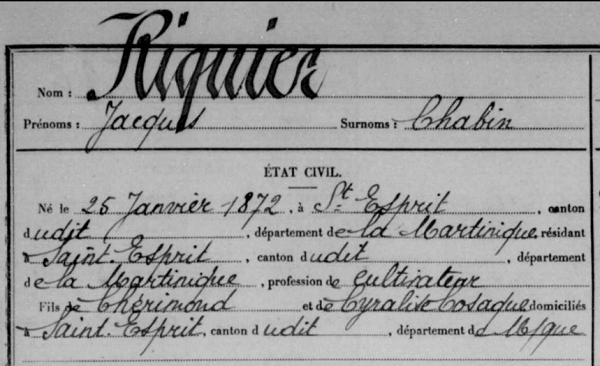 Nom : Riquier
Prénoms : Jacques Surnoms : Chabin
ÉTAT CIVIL.
Né le 25 Janvier 1872, à St Esprit, canton
dudit, département de la Martinique, résidant
à Saint-Esprit, canton dudit, département
de la Martinique, profession de Cultivateur
Fils de Chérimond et de Cyralise Cosaque domiciliés
à Saint-Esprit, canton dudit, département de Mque